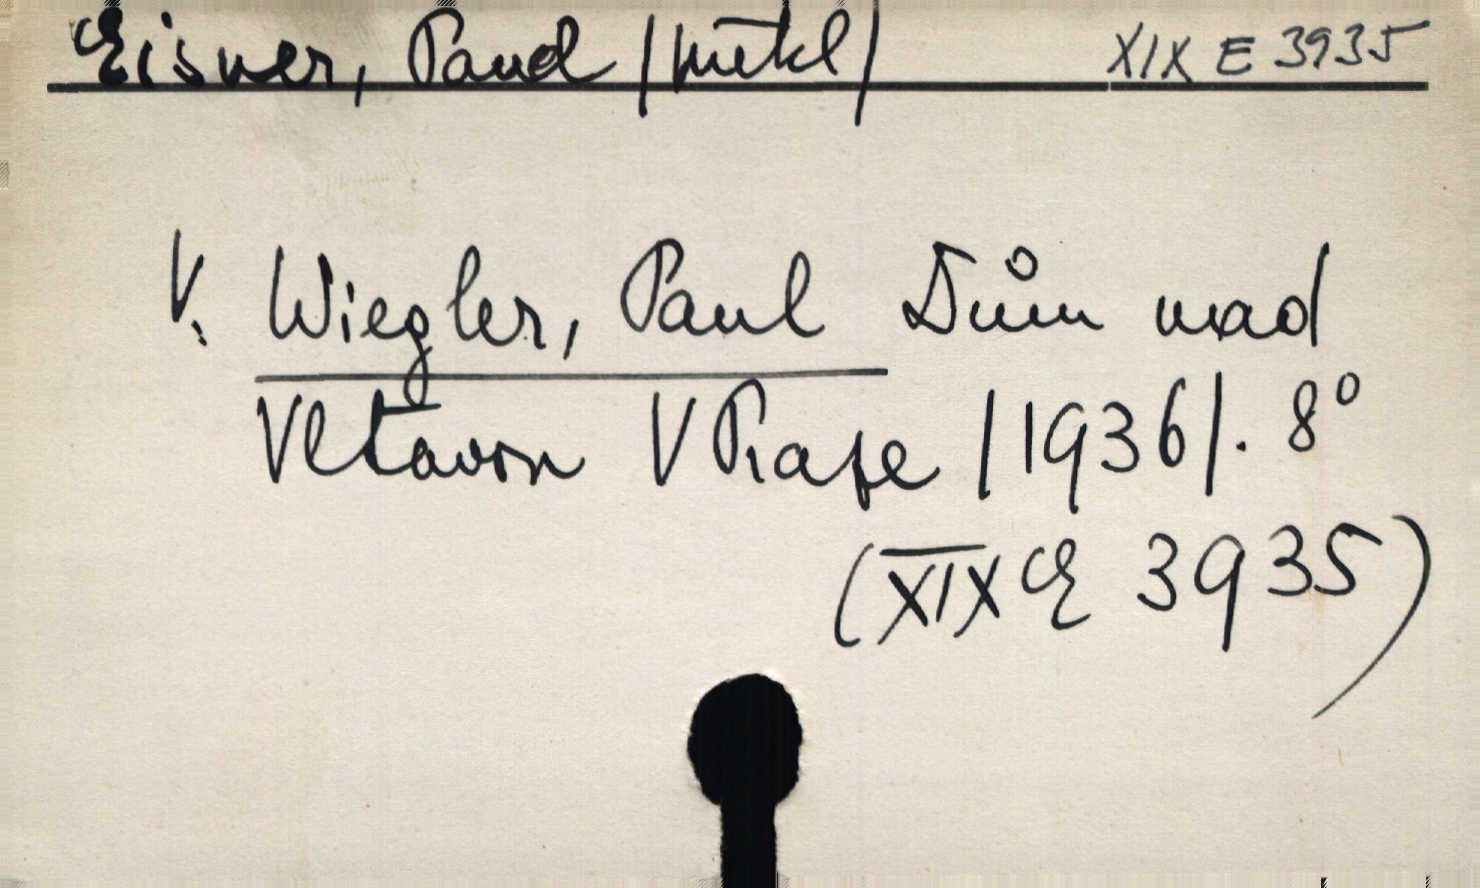 Eisner, Paul /překl/ XIX E 3935
V. Wiegler, Paul Dům nad
Vltavou V Praze /1936/. 8°
(XIX E 3935)